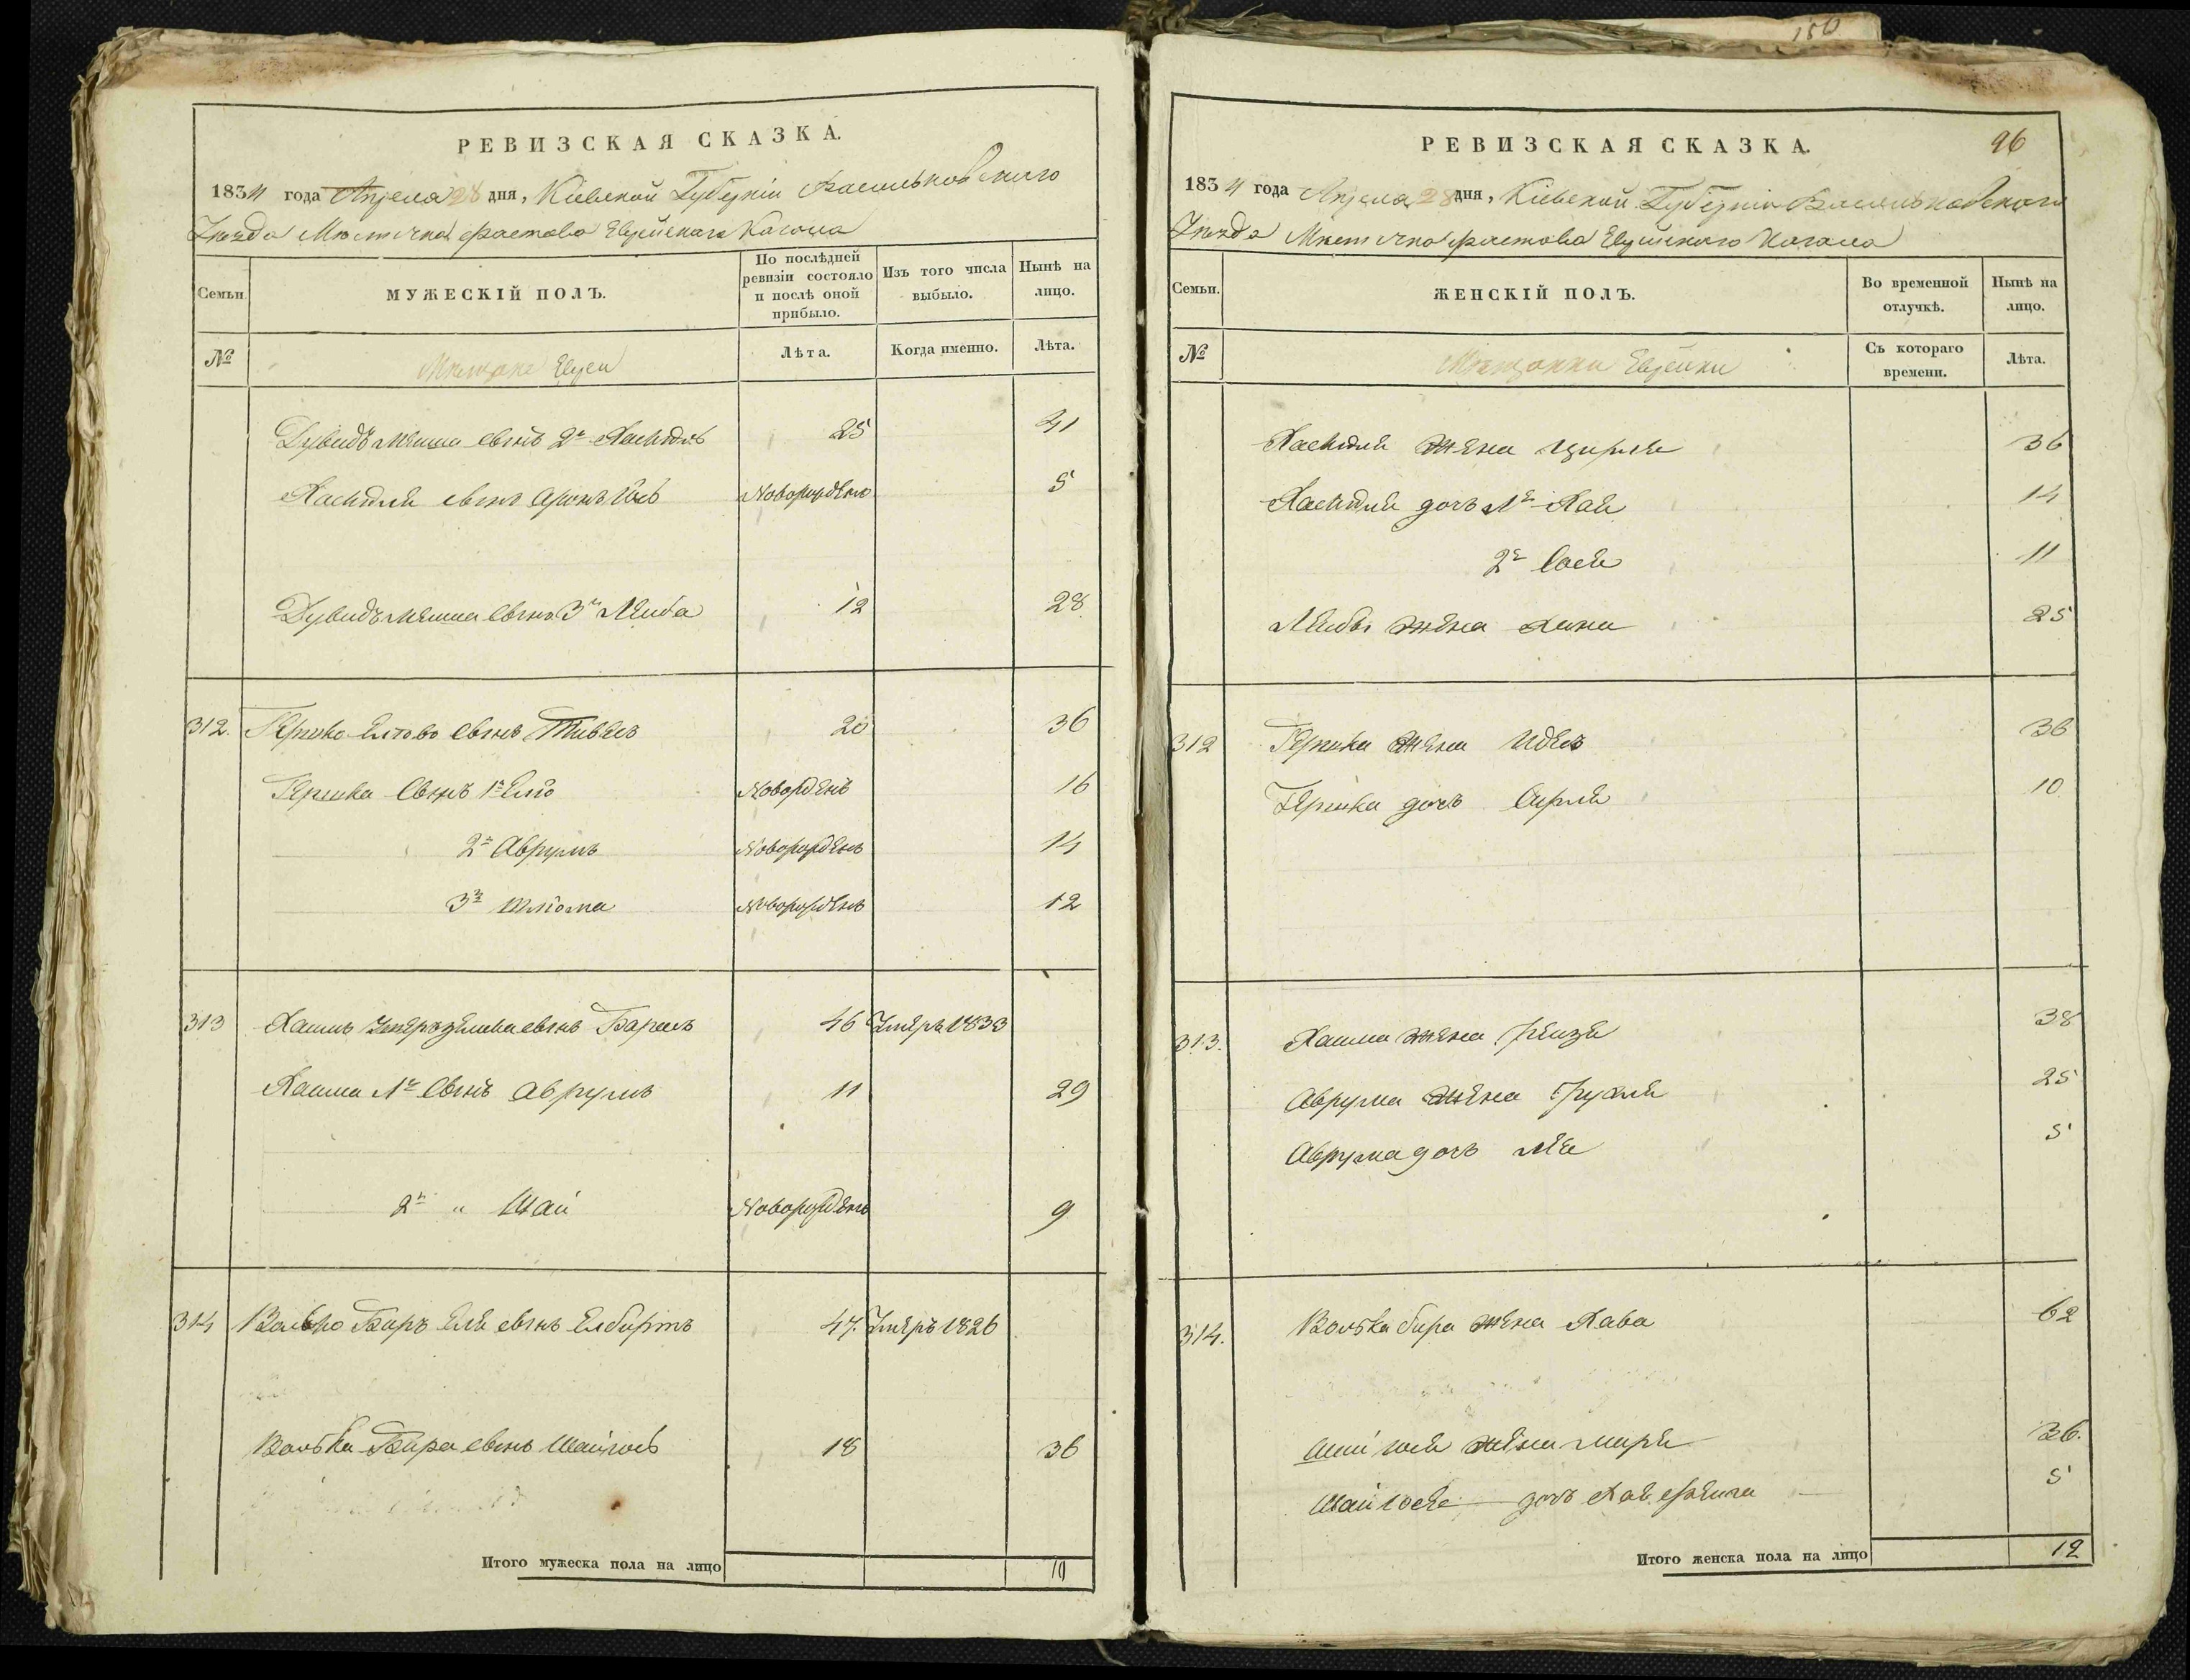 180
РЕВИЗСКАЯ СКАЗКА.
1834 года Апреля 28 дня, Кіевской Губерніи Васильковскаго
Уезда Местечка Фастова Еврейскаго Кагала
Семьи.
МУЖЕСКІЙ ПОЛЪ.
По послѣдней ревизіи состояло и послѣ оной прибыло.
Изъ того числа выбыло.
Нынѣ на лицо.
№
Мещане Евреи
Лѣта.
Когда именно.
Лѣта.
Дувидъ Мошка сынъ 2й 25 41
сынъ Аронъ Новорожденъ 5
Дувидъ сынъ 3й Лейба 12 28
312. Гершко сынъ 20 36
Гершка сынъ 1й Новорожденъ 16
2й Аврумъ Новорожденъ 14
3й Шлiома Новорожденъ 12
313 Хаимъ сынъ 46 Умеръ 1833
Хаима 1й сынъ Аврумъ 11 29
2й " Шай Новорожденъ 9
314 Волько Беръ сынъ 47 Умеръ 1826
Волька Бера сынъ 18 36
Итого мужеска пола на лицо 10
РЕВИЗСКАЯ СКАЗКА.
96
1834 года Апреля 28 дня, Кіевской Губерніи Васильковскаго
Уезда Местечка Фастова Еврейскаго Кагала
Семьи.
ЖЕНСКІЙ ПОЛЪ.
Во временной отлучкѣ.
Нынѣ на лицо.
№
Мещанки Еврейки
Съ котораго времени.
Лѣта.
жена Цирля 36
дочь 1я Хая 14
2я Сося 11
Лейбы жена Хана 25
312 Гершка жена Идесъ 36
Гершка дочь Сирля 10
313. Хаима жена Рейзя 38
Аврума жена Рухля 25
Аврума дочь Лея 5
314. Волька Бера жена Хава 62
жена Миря 36.
дочь 5
Итого женска пола на лицо 12